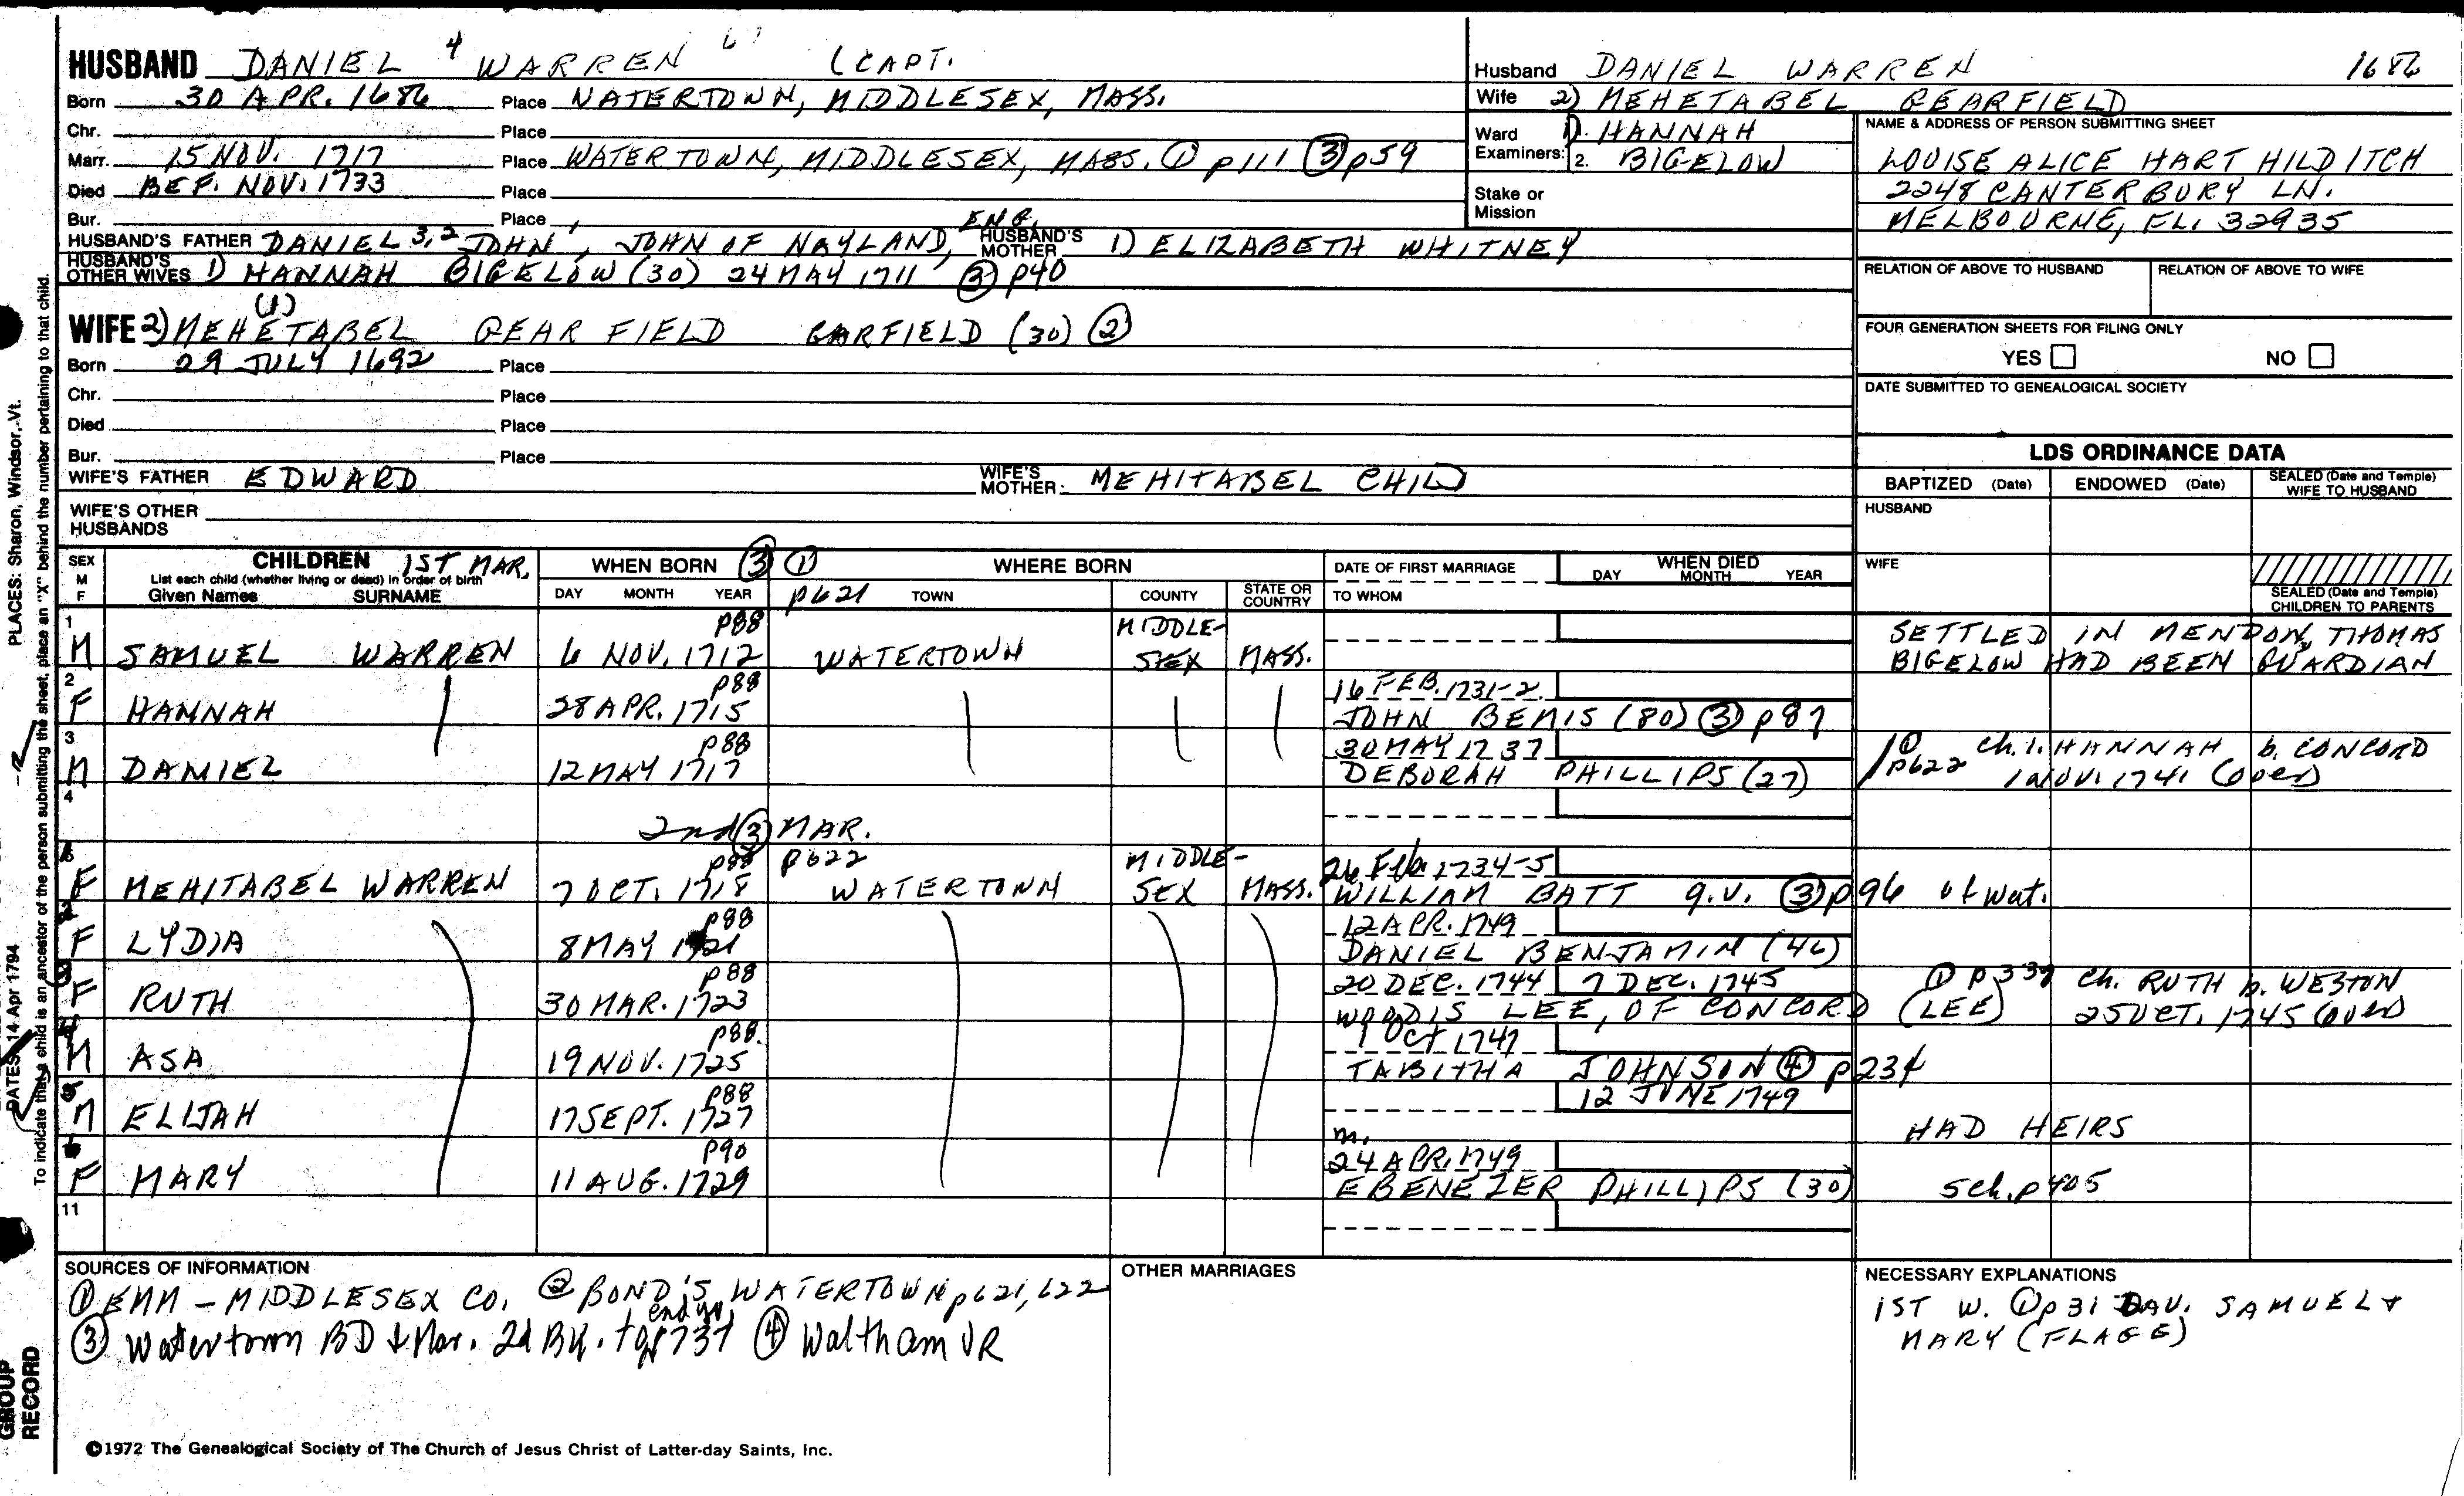 HUSBAND DANIEL 4 WARREN (CAPT.
Born 30 APR. 1686 Place WATERTOWN, MIDDLESEX, MASS.
Chr. Place
Marr. 15 NOV. 1717 Place WATERTOWN, MIDDLESEX, MASS. ① p111 ③ p59
Died BEF. NOV. 1733 Place
Bur. Place
HUSBAND'S FATHER DANIEL 3, 2 JOHN, 1 JOHN OF NAYLAND, ENG. HUSBAND'S MOTHER 1) ELIZABETH WHITNEY
HUSBAND'S OTHER WIVES 1) HANNAH BIGELOW (30) 24 MAY 1711 ③ p40
(1)
WIFE 2) MEHETABEL GEARFIELD GARFIELD (30) ②
Born 29 JULY 1692 Place
Chr. Place
Died Place
Bur. Place
WIFE'S FATHER EDWARD WIFE'S MOTHER: MEHITABEL CHILD
WIFE'S OTHER HUSBANDS
Husband DANIEL WARREN 1686
Wife 2) MEHETABEL GEARFIELD
Ward Examiners: 1). HANNAH
2. BIGELOW
Stake or Mission
NAME & ADDRESS OF PERSON SUBMITTING SHEET
LOUISE ALICE HART HILDITCH
2248 CANTERBURY LN.
MELBOURNE, FL. 32935
RELATION OF ABOVE TO HUSBAND RELATION OF ABOVE TO WIFE
FOUR GENERATION SHEETS FOR FILING ONLY
YES NO
DATE SUBMITTED TO GENEALOGICAL SOCIETY
LDS ORDINANCE DATA
BAPTIZED (Date) ENDOWED (Date) SEALED (Date and Temple) WIFE TO HUSBAND
HUSBAND
WIFE
SEALED (Date and Temple) CHILDREN TO PARENTS
SEX M F CHILDREN 1ST MAR. WHEN BORN ③ ① WHERE BORN DATE OF FIRST MARRIAGE WHEN DIED
List each child (whether living or dead) in order of birth
Given Names SURNAME DAY MONTH YEAR p621 TOWN COUNTY STATE OR COUNTRY TO WHOM DAY MONTH YEAR
1 p88 MIDDLE- SETTLED IN MENDON, THOMAS
M SAMUEL WARREN 6 NOV. 1712 WATERTOWN SEX MASS. BIGELOW HAD BEEN GUARDIAN
2 p88 16 FEB. 1731-2
F HANNAH 28 APR. 1715 JOHN BEMIS (80) ③ p87
3 p88 30 MAY 1737 ① p622 Ch. 1. HANNAH b. CONCORD
M DANIEL 12 MAY 1717 DEBORAH PHILLIPS (27) 1 NOV. 1741 (over)
4
2nd ③ MAR.
p88 p622 MIDDLE- 26 Feb 1734-5
F MEHITABEL WARREN 7 OCT. 1718 WATERTOWN SEX MASS. WILLIAM BATT q.v. ③ p96 of Wat.
2 p88 12 APR. 1749
F LYDIA 8 MAY 1721 DANIEL BENJAMIN (46)
3 p88 20 DEC. 1744 7 DEC. 1745 ① p339 Ch. RUTH b. WESTON
F RUTH 30 MAR. 1723 WOODIS LEE, OF CONCORD (LEE) 25 OCT. 1745 (over)
4 p88. 1 Oct 1747
M ASA 19 NOV. 1725 TABITHA JOHNSON ④ p234
5 p88 12 JUNE 1749
M ELIJAH 17 SEPT. 1727 HAD HEIRS
6 p90 m. 24 APR. 1749
F MARY 11 AUG. 1729 EBENEZER PHILLIPS (30) sch. p405
11
SOURCES OF INFORMATION
① EMM - MIDDLESEX CO. ② BOND'S WATERTOWN p621, 622
③ Watertown BD & Mar. 2d Bk. 1737 ④ Waltham VR
OTHER MARRIAGES
NECESSARY EXPLANATIONS
1ST W. ① p31 DAU. SAMUEL &
MARY (FLAGG)
©1972 The Genealogical Society of The Church of Jesus Christ of Latter-day Saints, Inc.
PLACES: Sharon, Windsor, Vt.
DATES: 14 Apr 1794
To indicate that a child is an ancestor of the person submitting the sheet, place an "X" behind the number pertaining to that child.
GROUP
RECORD